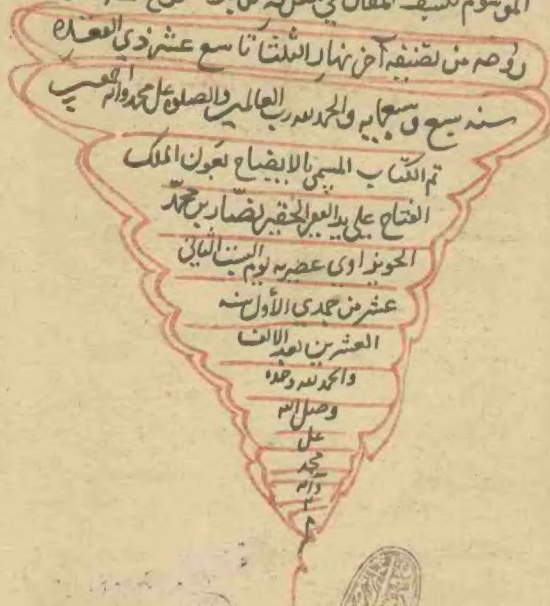 الموسوم بكشف المقال في
روحه من تصنيفه آخر نهار الثلثا تاسع عشر ذي القعده
سنه سبع وسبعمايه والحمد لله رب العالمين والصلوة على محمد واله اجمعين
تم الكتاب المسمى بالايضاح لعون الملك
الفتاح على يد الفقير الحقير نصار بن محمد
الحويزاوي عصريه يوم السبت الثاني
عشر من جمدي الأول سنه
العشرين بعد الالف
والحمد لله وحده
وصلى الله
على
محمد
وآله